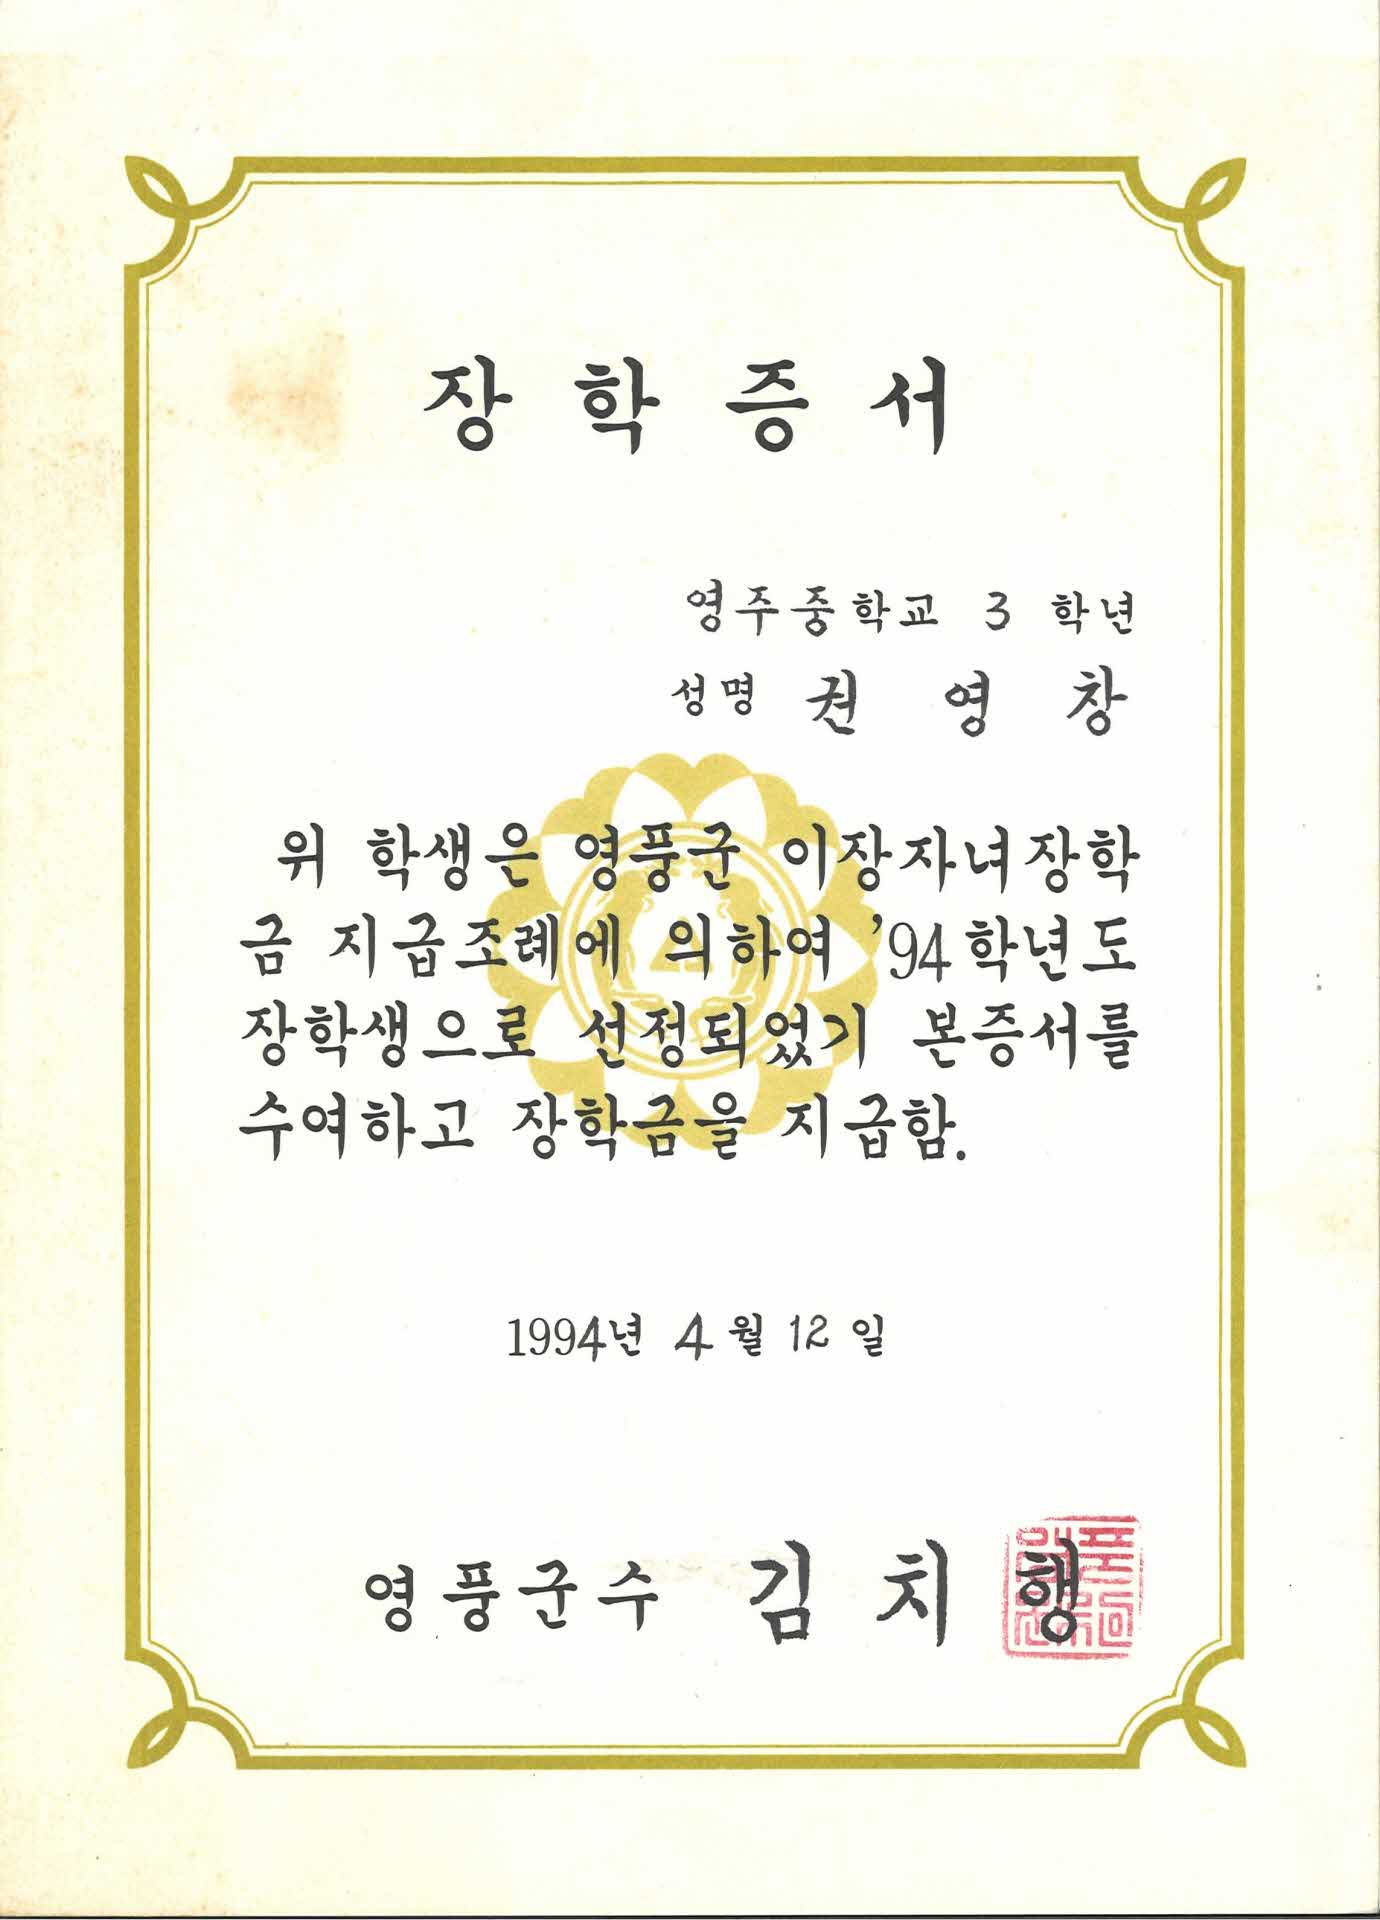 장 학 증 서
영주중학교 3 학년
성명 권 영 창
위 학생은 영풍군 이장자녀장학
금 지급조례에 의하여 '94학년도
장학생으로 선정되었기 본증서를
수여하고 장학금을 지급함.
1994년 4월 12일
영풍군수 김 치 행